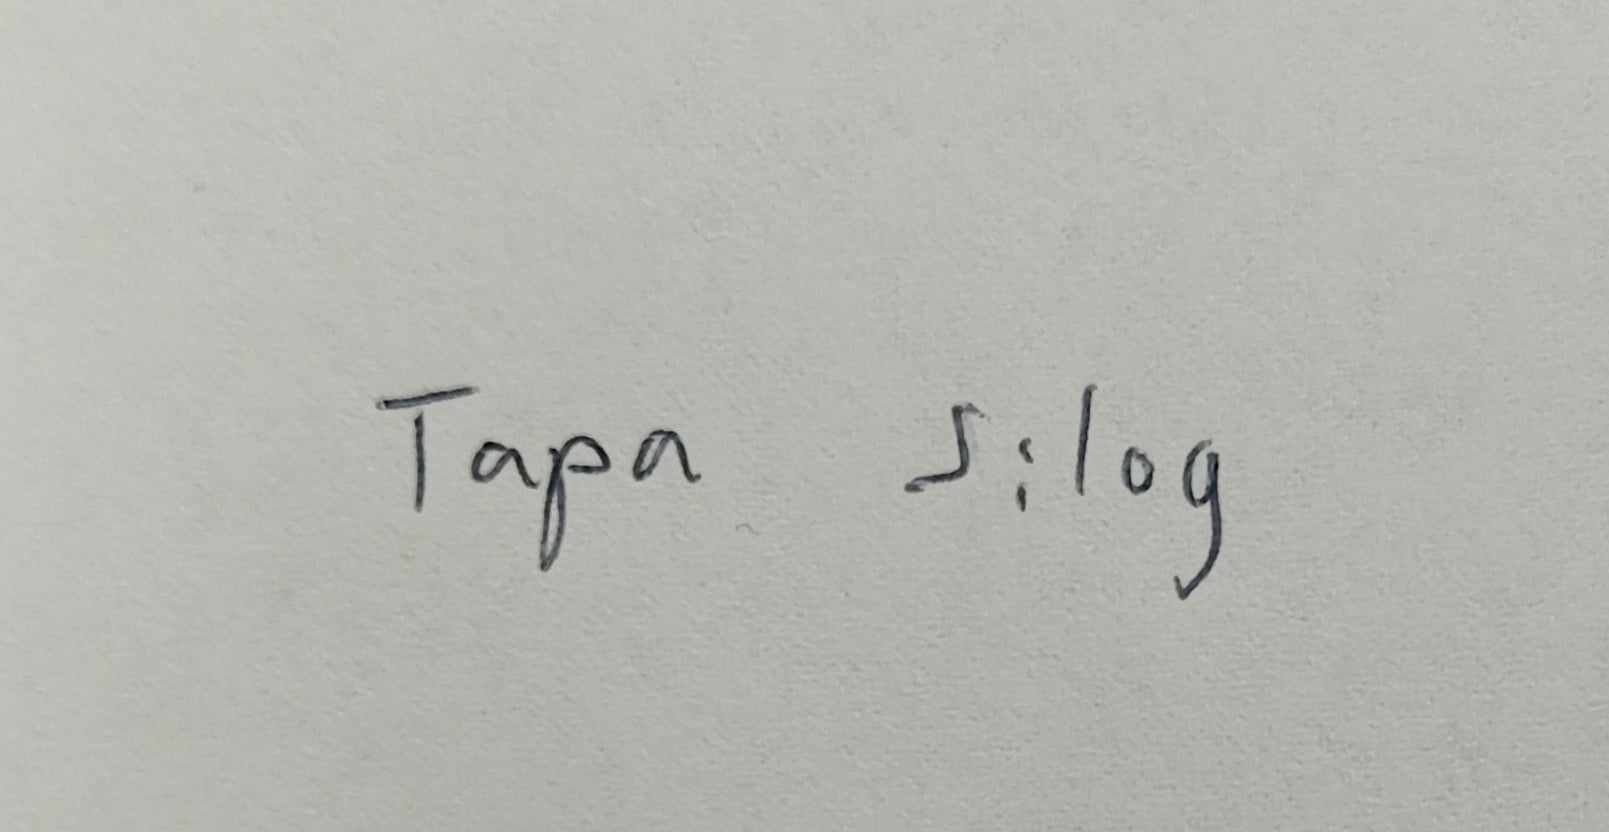 Tapa silog